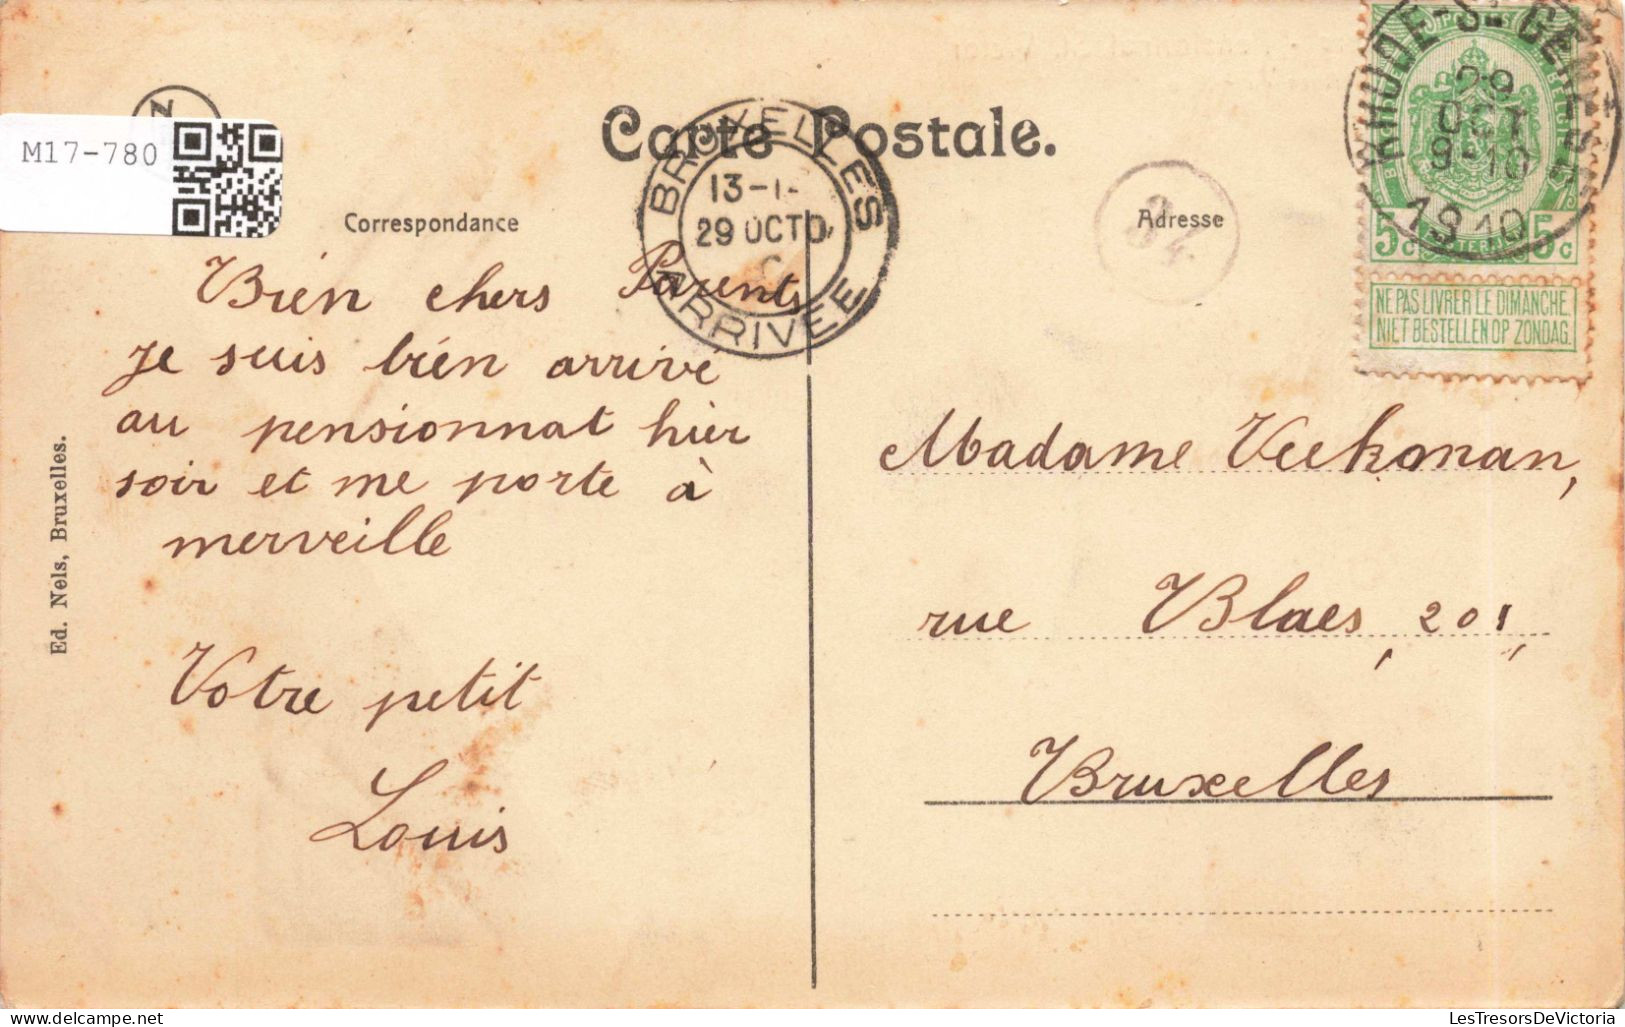 M17-780
Carte Postale.
Correspondance
Adresse
BRUXELLES
13-1
29 OCTO
ARRIVEE
RHODE-St-GENESE
29
OCT
9-10
1910
POSTES
5c 5c
NE PAS LIVRER LE DIMANCHE.
NIET BESTELLEN OP ZONDAG.
Bien chers Parents
Je suis bien arrivé
au pensionnat hier
soir et me porte à
merveille
Votre petit
Louis
Madame Veekman,
rue Blaes, 201,
Bruxelles
Ed. Nels, Bruxelles.
LesTresorsDeVictoria